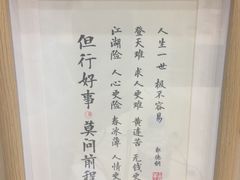 人生一世 极不容易
登天难 求人更难 黄连苦 无钱更
江湖险 人心更险 春冰薄 人情更
但行好事 莫问前程
郭德纲